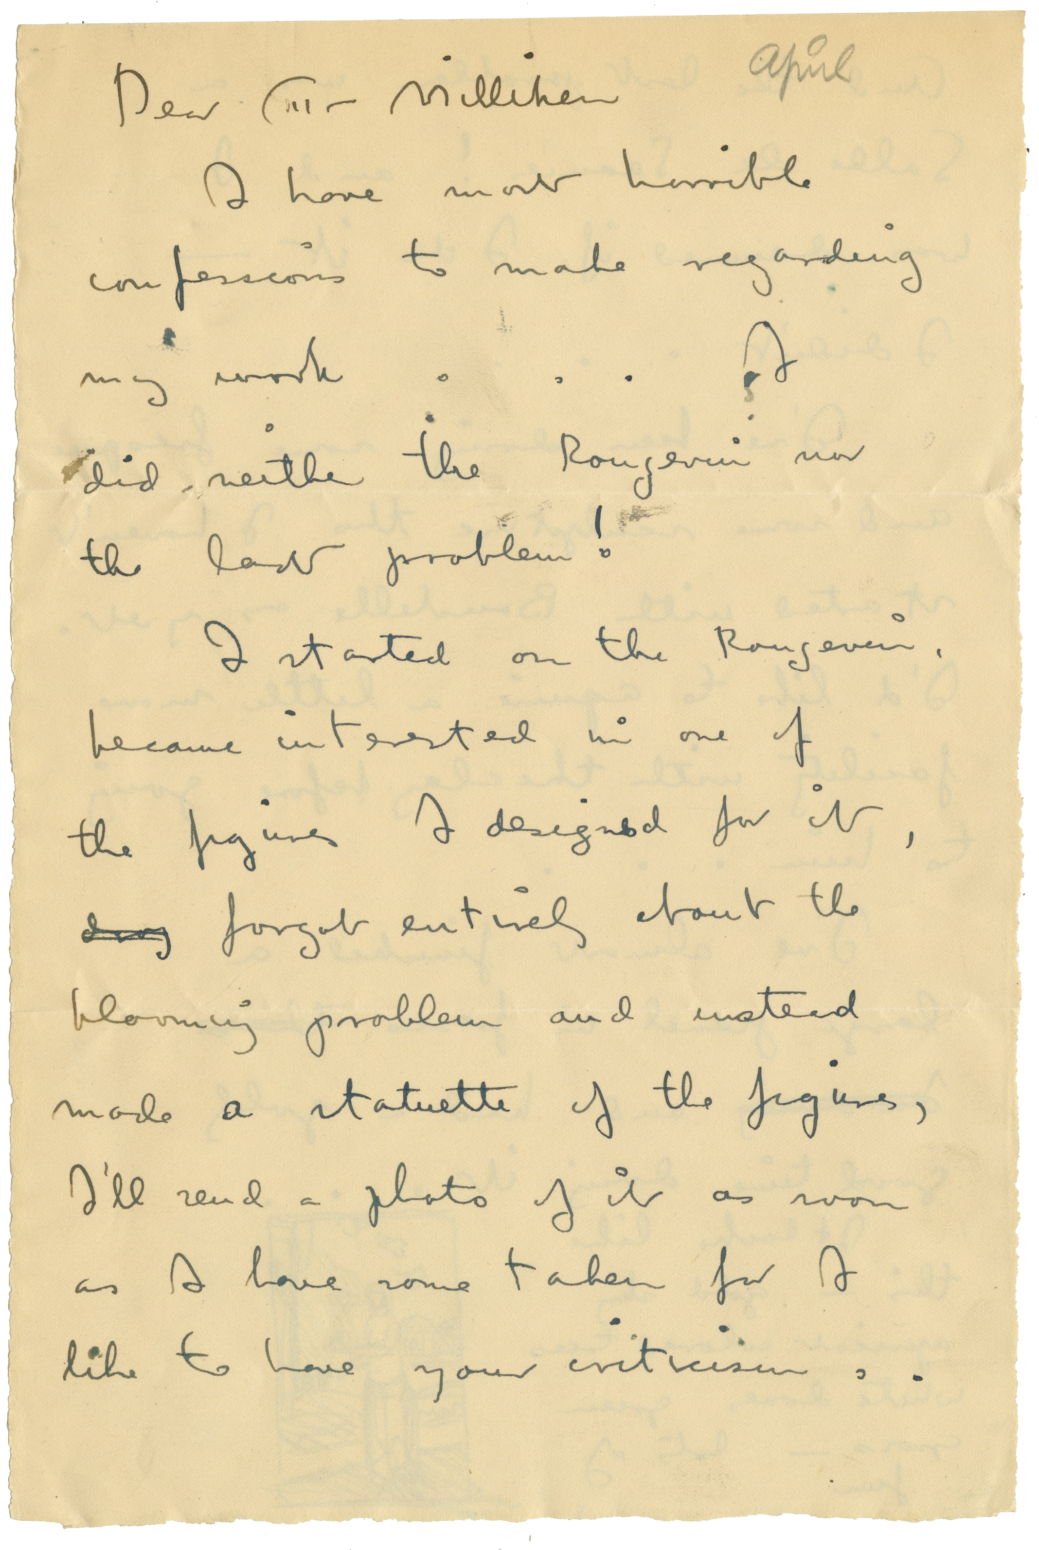 April
Dear Mr Milliken
I have most horrible
confessions to make regarding
my work . . . I
did neither the Rougevin nor
the last problem!
I started on the Rougevin,
became interested in one of
the figures I designed for it,
forgot entirely about the
blooming problem and instead
made a statuette of the figures,
I'll send a photo of it as soon
as I have some taken for I
like to have your criticism . .